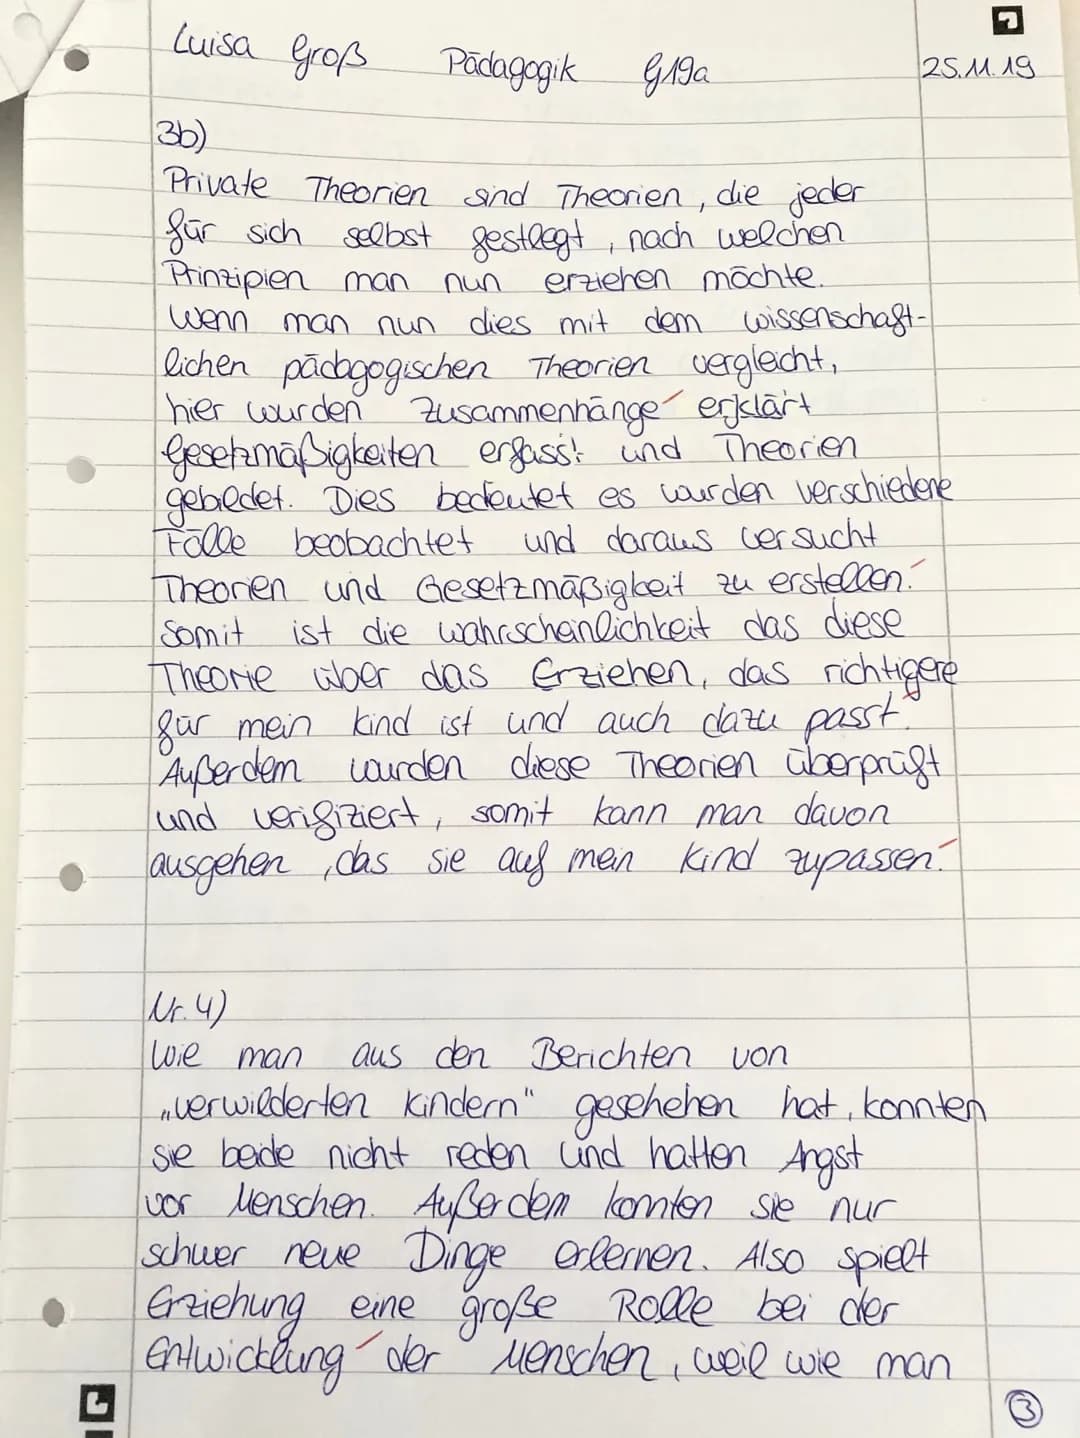 Luisa Groß Pädagogik G19a 25.11.19
3b)
Private Theorien sind Theorien, die jeder
für sich selbst festlegt, nach welchen
Prinzipien man nun erziehen möchte.
Wenn man nun dies mit dem wissenschaft-
lichen pädagogischen Theorien vergleicht,
hier wurden Zusammenhänge erklärt
Gesetzmäßigkeiten erfasst und Theorien
gebildet. Dies bedeutet es wurden verschiedene
Fälle beobachtet und daraus versucht
Theorien und Gesetzmäßigkeit zu erstellen.
Somit ist die wahrscheinlichkeit das diese
Theorie über das Erziehen, das richtigere
für mein kind ist und auch dazu passt.
Außerdem wurden diese Theorien überprüft
und verifiziert, somit kann man davon
ausgehen, das sie auf mein Kind zupassen.
Nr. 4)
Wie man aus den Berichten von
„verwilderten Kindern" gesehehen hat, konnten
sie beide nicht reden und hatten Angst
vor Menschen. Außerdem konnten sie nur
schwer neue Dinge erlernen. Also spielt
Erziehung eine große Rolle bei der
Entwicklung der Menschen, weil wie man
3